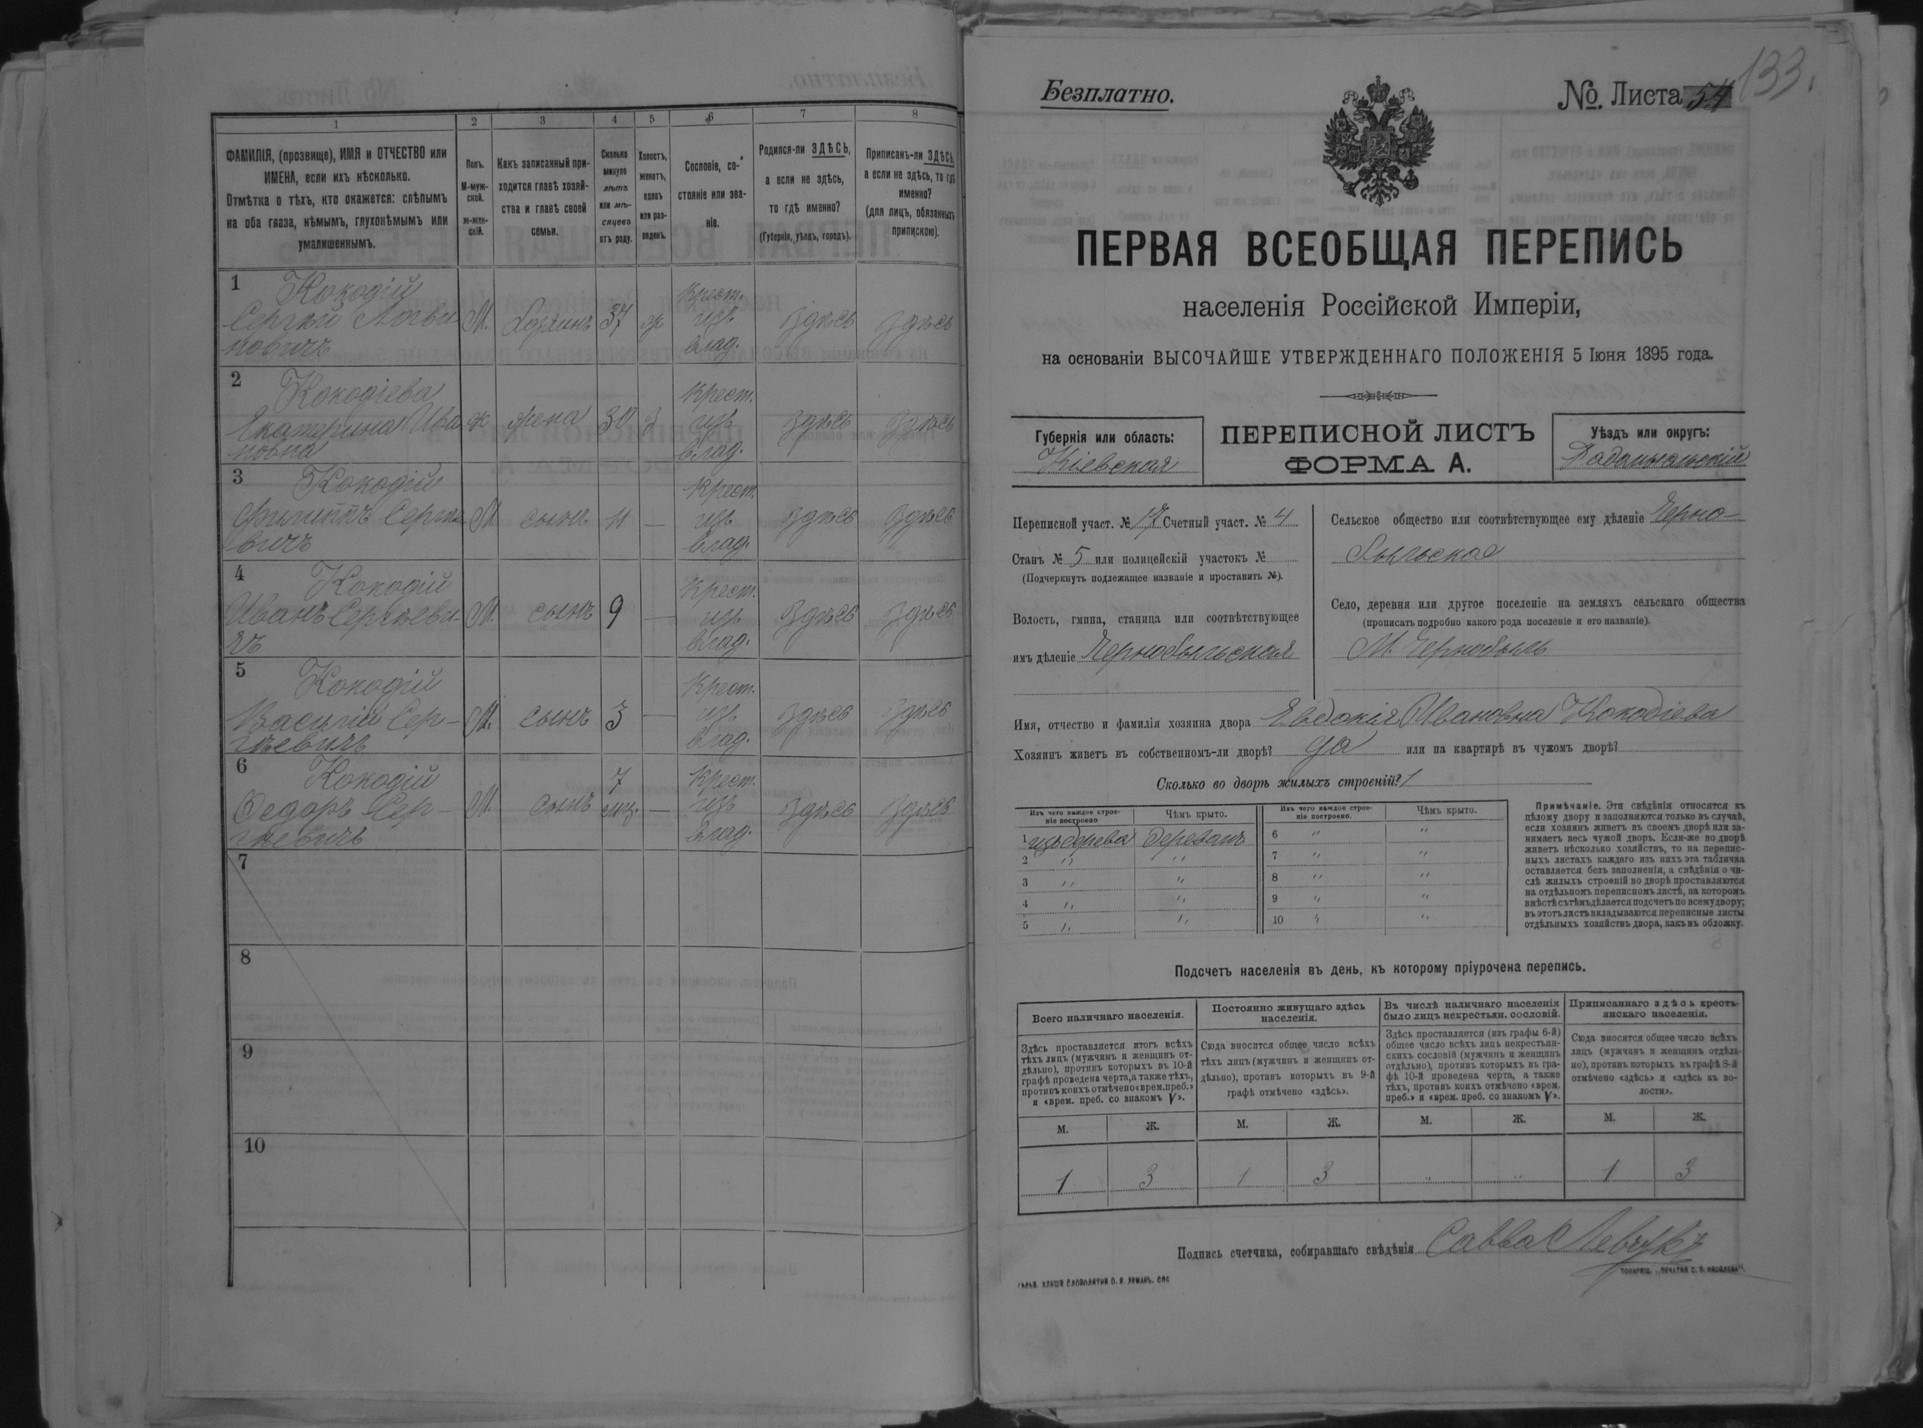 1 2 3 4 5 6 7 8
ФАМИЛІЯ, (прозвище), ИМЯ и ОТЧЕСТВО или
ИМЕНА, если ихъ нѣсколько.
Отмѣтка о тѣхъ, кто окажется: слѣпымъ
на оба глаза, нѣмымъ, глухонѣмымъ или
умалишеннымъ.
Полъ.
М-муж-
ской.
ж-жен-
скій.
Какъ записанный при-
ходится главѣ хозяй-
ства и главѣ своей
семьи.
Сколько
минуло
лѣтъ
или мѣ-
сяцевъ
отъ роду.
Холостъ,
женатъ,
вдовъ
или раз-
веденъ.
Сословіе, со-
стояніе или зва-
ніе.
Родился-ли ЗДѢСЬ,
а если не здѣсь,
то гдѣ именно?
(Губернія, уѣздъ, городъ).
Приписанъ-ли ЗДѢСЬ,
а если не здѣсь, то гдѣ
именно?
(для лицъ, обязанныхъ
припискою).
1 Кокодій
Сергѣй Логви
новичъ
М. Хозяинъ 37 ж
Крест.
изъ
влад.
Здѣсь Здѣсь
2 Кокодіева
Екатерина Ива
новна
ж жена 30 з
Крест.
изъ
влад.
Здѣсь Здѣсь
3 Кокодій
Филиппъ Серге
вичъ
М сынъ 11 —
Крест.
изъ
влад.
Здѣсь Здѣсь
4 Кокодій
Иванъ Сергѣеви-
чъ
М. сынъ 9 —
Крест.
изъ
влад.
Здѣсь Здѣсь
5 Кокодій
Василій Сер-
гѣевичъ
М. сынъ 3 —
Крест.
изъ
влад.
Здѣсь Здѣсь
6 Кокодій
Федоръ Сер-
гѣевичъ
М. сынъ 7
мц. —
Крест.
изъ
влад.
Здѣсь Здѣсь
7
8
9
10
133.
Безплатно.
№. Листа 54
ПЕРВАЯ ВСЕОБЩАЯ ПЕРЕПИСЬ
населенія Россійской Имперіи,
на основаніи ВЫСОЧАЙШЕ УТВЕРЖДЕННАГО ПОЛОЖЕНІЯ 5 Іюня 1895 года.
Губернія или область:
Кіевская
ПЕРЕПИСНОЙ ЛИСТЪ
ФОРМА А.
Уѣздъ или округъ:
Радомысльскій
Переписной участ. № 17 Счетный участ. № 4
Станъ № 5 или полицейскій участокъ №
(Подчеркнуть подлежащее названіе и проставить №).
Волость, гмина, станица или соотвѣтствующее
имъ дѣленіе Чернобыльская
Сельское общество или соотвѣтствующее ему дѣленіе Черно-
быльское
Село, деревня или другое поселеніе на земляхъ сельскаго общества
(прописать подробно какого рода поселеніе и его названіе).
М. Чернобыль
Имя, отчество и фамилія хозяина двора Евдокія Ивановна Кокодіева
Хозяинъ живетъ въ собственномъ-ли дворѣ? да или на квартирѣ въ чужомъ дворѣ?
Сколько во дворѣ жилыхъ строеній? 1
Изъ чего каждое строе-
ніе построено
Чѣмъ крыто.
Изъ чего каждое строе-
ніе построено.
Чѣмъ крыто.
1 изъ дерева деревомъ
6 " "
2 " "
7 " "
3 " "
8 " "
4 " "
9 " "
5 " "
10 " "
Примѣчаніе. Эти свѣдѣнія относятся къ
цѣлому двору и заполняются только въ случаѣ,
если хозяинъ живетъ въ своемъ дворѣ или за-
нимаетъ весь чужой дворъ. Если-же во дворѣ
живетъ нѣсколько хозяйствъ, то на перепис-
ныхъ листахъ каждаго изъ нихъ эта табличка
оставляется безъ заполненія, а свѣдѣнія о чи-
слѣ жилыхъ строеній во дворѣ проставляются
на отдѣльномъ переписномъ листѣ, на которомъ
вмѣстѣ съ тѣмъ дѣлается подсчетъ по всему двору;
въ этотъ листъ вкладываются переписные листы
отдѣльныхъ хозяйствъ двора, какъ въ обложку.
Подсчетъ населенія въ день, къ которому пріурочена перепись.
Всего наличнаго населенія.
Постоянно живущаго здѣсь
населенія.
Въ числѣ наличнаго населенія
было лицъ некрестьян. сословій.
Приписаннаго здѣсь кресть-
янскаго населенія.
Здѣсь проставляется итогъ всѣхъ
тѣхъ лицъ (мужчинъ и женщинъ от-
дѣльно), противъ которыхъ въ 10-й
графѣ проведена черта, а также тѣхъ,
противъ коихъ отмѣчено «врем. преб.»
и «врем. преб. со знакомъ V».
Сюда вносится общее число всѣхъ
тѣхъ лицъ (мужчинъ и женщинъ от-
дѣльно), противъ которыхъ въ 9-й
графѣ отмѣчено «здѣсь».
Здѣсь проставляется (изъ графы 6-й)
общее число всѣхъ лицъ некрестьян-
скихъ сословій (мужчинъ и женщинъ
отдѣльно), противъ которыхъ въ гра-
фѣ 10-й проведена черта, а также
тѣхъ, противъ коихъ отмѣчено «врем.
преб.» и «врем. преб. со знакомъ V».
Сюда вносится общее число всѣхъ
лицъ (мужчинъ и женщинъ отдѣль-
но), противъ которыхъ въ графѣ 8-й
отмѣчено «здѣсь» и «здѣсь въ во-
лости».
М. Ж. М. Ж. М. Ж. М. Ж.
1 3 1 3 " " 1 3
Подпись счетчика, собиравшаго свѣдѣнія Савва Левчукъ
СЛОВОЛИТНИ О. И. ЛЕМАНЪ. СПБ
ТОВАРИЩ. „ПЕЧАТНЯ С. П. ЯКОВЛЕВА".